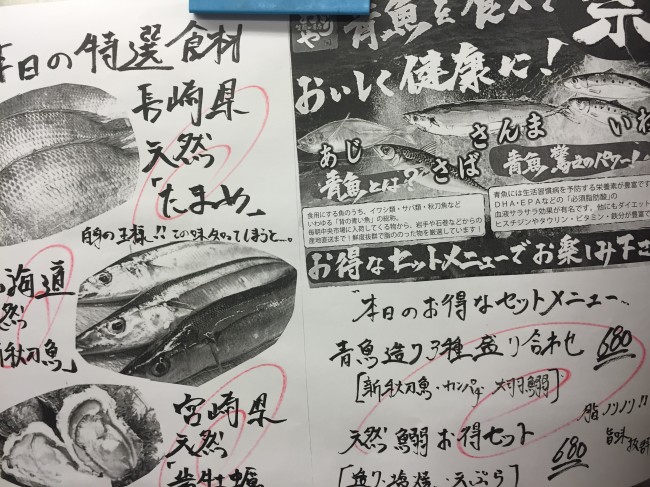 本日の特選食材
長崎県
天然
「たまめ」
この味知ってしまうと…。
海道
然
新秋刀魚」
宮崎県
天然
岩牡蠣
青魚を食べて
祭
おいしく健康に!
あじ
さば
さんま
いわ
青魚とは?
食用にする魚のうち、イワシ類・サバ類・秋刀魚など
いわゆる「背の青い魚」の総称。
毎朝中央市場に入荷してくる物から、岩手や石巻などからの
産地直送まで!鮮度抜群で脂ののった物を厳選しています!
青魚 驚きのパワー!
青魚には生活習慣病を予防する栄養素が豊富です
DHA・EPAなどの「必須脂肪酸」の
血液サラサラ効果が有名です。他にもダイエット
ヒスチジンやタウリン・ビタミン・鉄分が豊富で
お得なセットメニューでお楽しみ下さ
"本日のお得なセットメニュー"
青魚造り3種盛り合わせ 680
[新秋刀魚・カンパチ 大羽鰯]
脂ノリノリ!!
旨味
抜群
天然 鰯お得セット 680
[造り・塩焼・天ぷら]